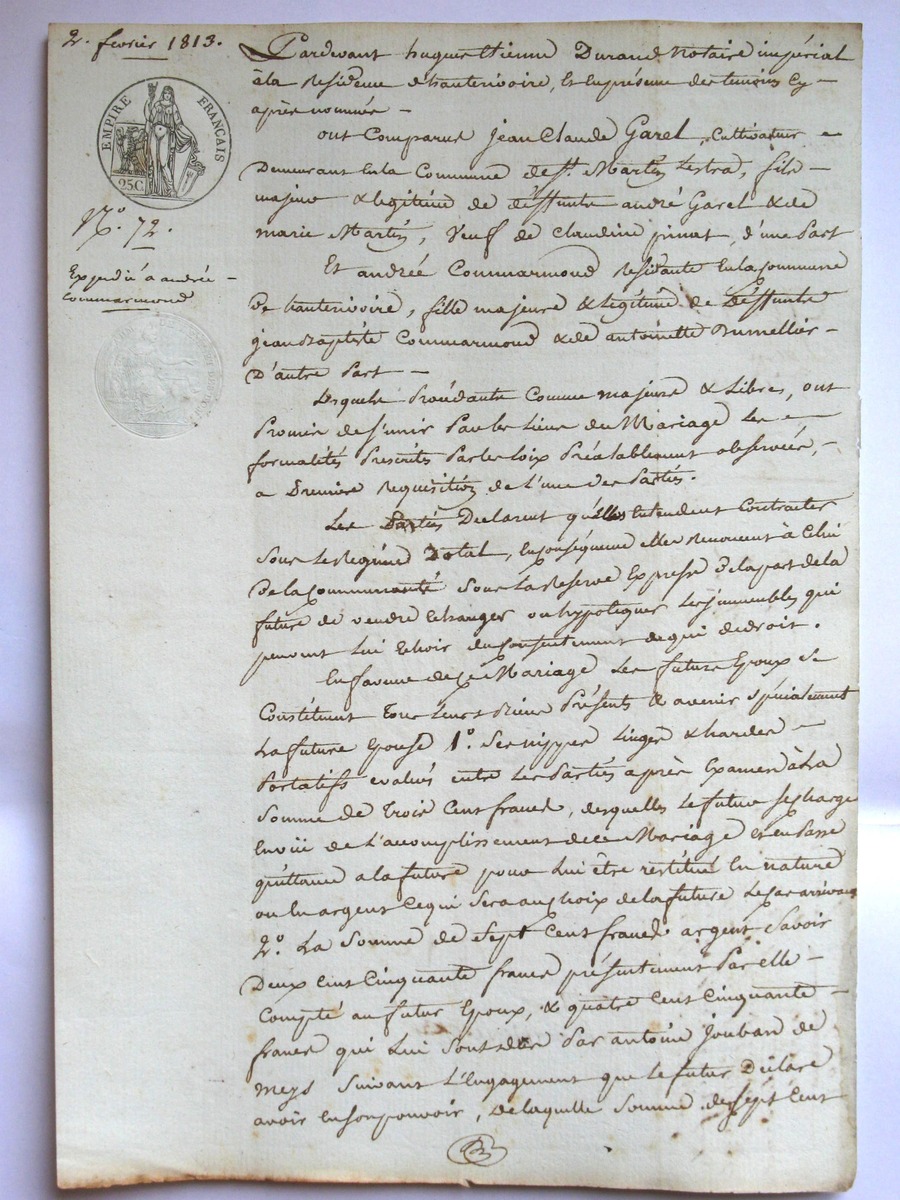 2. fevrier 1813.
EMPIRE FRANÇAIS
25C.
N.º 72.
Expedié a andrée
Commarmond
Pardevant hugues Etienne Durand Notaire impérial
à la Residence d'hauterivoire, Et en présence des temoins Cy
après nommés
ont Comparus Jean Claude Garel, Cultivateur
Demeurant En la Commune de St. Martin Lestra, fils
majeur & legitime de deffunts andré Garel & de
marie Martin, Veuf de Claudine pinat, d'une Part
Et andrée Commarmond Residante En la Commune
D'hauterivoire, fille majeure & legitime de Deffunts
jean Baptiste Commarmond & de antoinette
D'autre Part
Lesquels Procédants Comme majeurs & Libres, ont
Promis de s'unir Par les liens du Mariage Les
formalités Prescrites Par les loix Préalablement observées,
a Premiere Requisition de L'une des Parties.
Les Parties Declarent qu'elles Entendent Contracter
Sous Le Regime Dotal, En conséquence elles Renoncent à Celui
De la Communauté Sous La Reserve Expresse De la part de la
future de vendre Echanger ou hypotequer Les immeubles qui
peuvent Lui Echoir du Consentement de qui de droit.
En faveur de Ce Mariage Les future Epoux Se
Constituent Tous Leurs Biens Présents & avenir Spécialement
La future Epouse 1.º Ses nippes Linges & hardes
Portatifs evalués entre Les Parties après Examen à La
Somme de Trois Cent francs, desquelles Le futur Se charge
En vüe de L'accomplissement de ce Mariage Et en Passe
quittance a la future pour Lui être restitué En nature
ou En argent Ce qui Sera au choix de la future Le cas arrivant
2.º La Somme de Sept Cent francs argent Savoir
Deux Cent Cinquante francs présentement Par elle
Compté au futur Epoux, & quatre Cent Cinquante
francs qui Lui Sont dûs Par antoine Jouban de
Meys Suivant L'Engagement que Le futur Déclare
avoir En son pouvoir, De laquelle Somme de Sept Cent